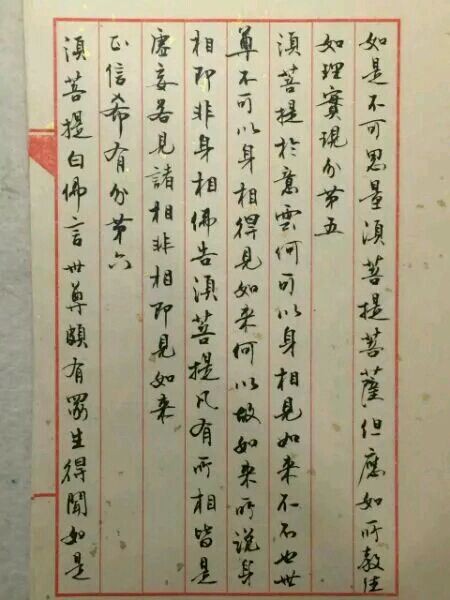 如是不可思量須菩提菩薩但應如所教住
如理實現分第五
須菩提於意雲何可以身相見如来不不也世
尊不可以身相得見如来何以故如来所說身
相即非身相佛告須菩提凡有所相皆是
虛妄若見諸相非相即見如来
正信希有分第六
須菩提白佛言世尊頗有眾生得聞如是